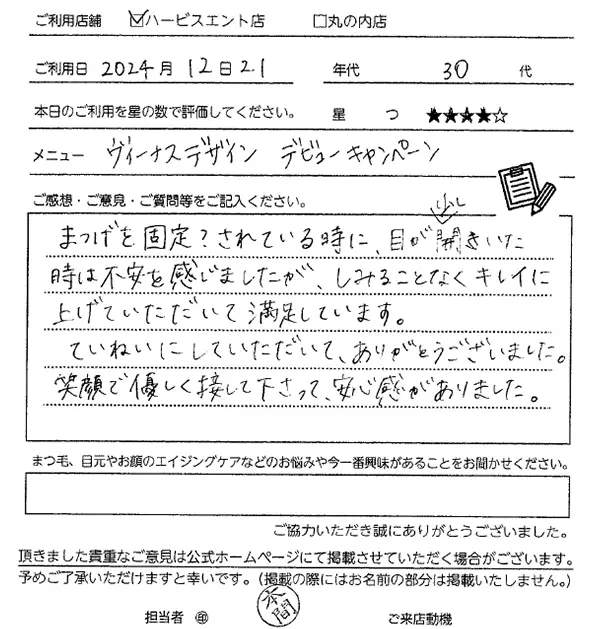 ご利用店舗 ☑ハービスエント店 □丸の内店
ご利用日 2024月 12日21 年代 30 代
本日のご利用を星の数で評価してください。 星 つ ★★★★☆
メニュー ヴィーナスデザイン デビューキャンペーン
ご感想・ご意見・ご質問等をご記入ください。
少し
まつげを固定?されている時に、目が開きいた
時は不安を感じましたが、しみることなくキレイに
上げていただいて満足しています。
ていねいにしていただいて、ありがとうございました。
笑顔で優しく接して下さって、安心感がありました。
まつ毛、目元やお顔のエイジングケアなどのお悩みや今一番興味があることをお聞かせください。
ご協力いただき誠にありがとうございました。
頂きました貴重なご意見は公式ホームページにて掲載させていただく場合がございます。
予めご了承いただけますと幸いです。(掲載の際にはお名前の部分は掲載いたしません。)
担当者 ㊞ 本間 ご来店動機